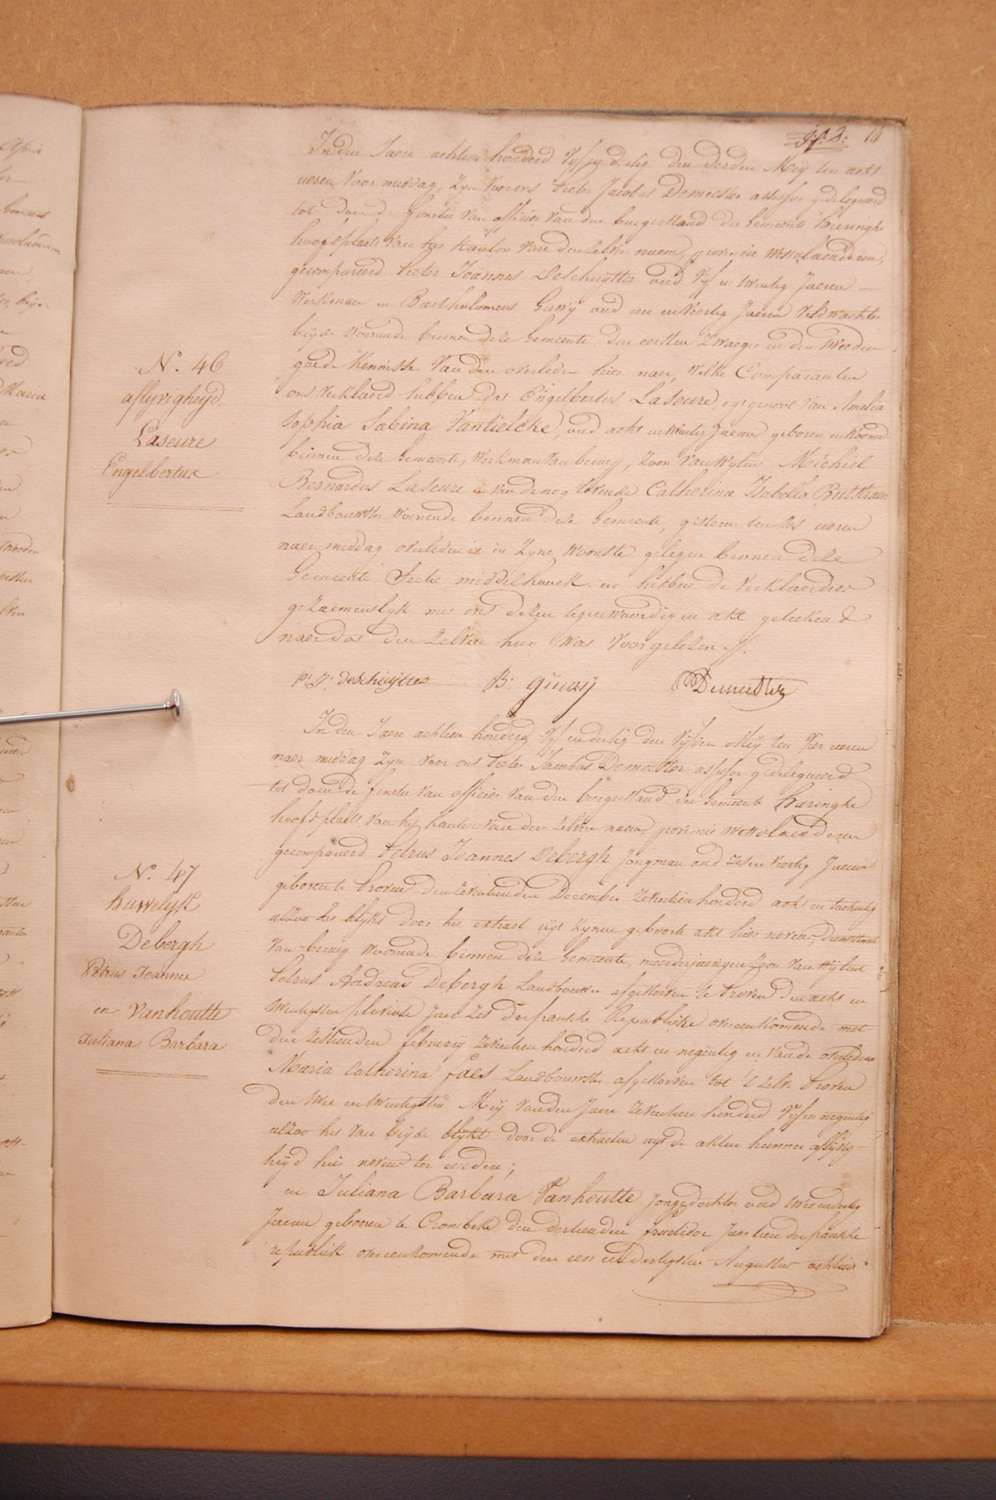 In den Jaere achtien honderd vyf en dertig den derden Mey ten acht
ueren voor middag, zyn voor ons Pieter Jacobus Demeester assessor gedelegueerd
tot doen de functie van officier van den burgerstand der gemeente Haringhe
hoofdplaets van het kanton van den zelven naem, provincie Westvlaenderen,
gecompareerd Pieter Joannes Deschuytter oud vyf en twintig Jaeren
Werkman en Bartholomeus Guwy oud een en veertig Jaeren Veldwachter
beyde woonende binnen deze Gemeente, den eersten Zwager en den tweeden
goede kennisse van den overleden hier naer, welke Comparanten
ons verklaerd hebben dat Engelbertus Laseure, egtgenoot van Amelia
Sophia Sabina Vantielcke, oud acht en twintig Jaeren geboren en woonende
binnen deze Gemeente, Werkman van beroep, zoon van wylen Meichiel
Bernardus Laseure en van de nog levende Catherina Isabella
Landbouwster woonende binnen deze Gemeente, gisteren ten zes ueren
naer middag overleden is in zyne woonste gelegen binnen deze
Gemeente Sectie middelhoeck en hebben de verklaerders
gezaementlyk met ons dezen tegenwoordigen akt geteekend
naer dat den zelven hun was voorgelezen.
P: J: deschuytter B: guwij PDemeester
In den Jaere achtien honderd vyf en dertig den vyfden Mey ten vier ueren
naer middag zyn voor ons Pieter Jacobus Demeester assessor gedelegueerd
tot doen de functie van officier van den burgerstand der Gemeente Haringhe
hoofdplaets van het kanton van den zelven naem, provincie Westvlaenderen
gecompareerd Petrus Joannes Debergh Jongman oud zeven veertig Jaeren
geboren te Proven den December zeventien honderd acht en tachentig
alzoo het blykt door het extract uyt zynen geboorte akt hier nevens, dienstbode
van beroep woonende binnen deze Gemeente, meerderjaerigen zoon van wylent
Petrus Andreas Debergh Landbouwer afgestorven te Proven den acht en
twintigsten pluviose Jaer zes der fransche Republike overeenkomende met
den zestienden february zeventien honderd acht en negentig en van de overledene
Maria Catherina Faes Landbouwster afgestorven tot 't zelve Proven
den twee en twintigsten Mey van den Jaere zeventien honderd vyf en negentig
alzoo het van beyde blykt door de extracten uyt de akten hunner aflyvig-
heyd hier nevens ter eerden;
en Juliana Barbara Vanhoutte jonge dochter oud twee en dertig
Jaeren geboren te Crombeke den derthienden fructidor Jaer tien der fransche
republiek overeenkomende met den een en dertigsten Augustus achtien
N.º 46
aflyvigheyd
Laseure
Engelbertus
N.º 47
huwelyk
Debergh
Petrus Joannes
en Vanhoutte
Juliana Barbara